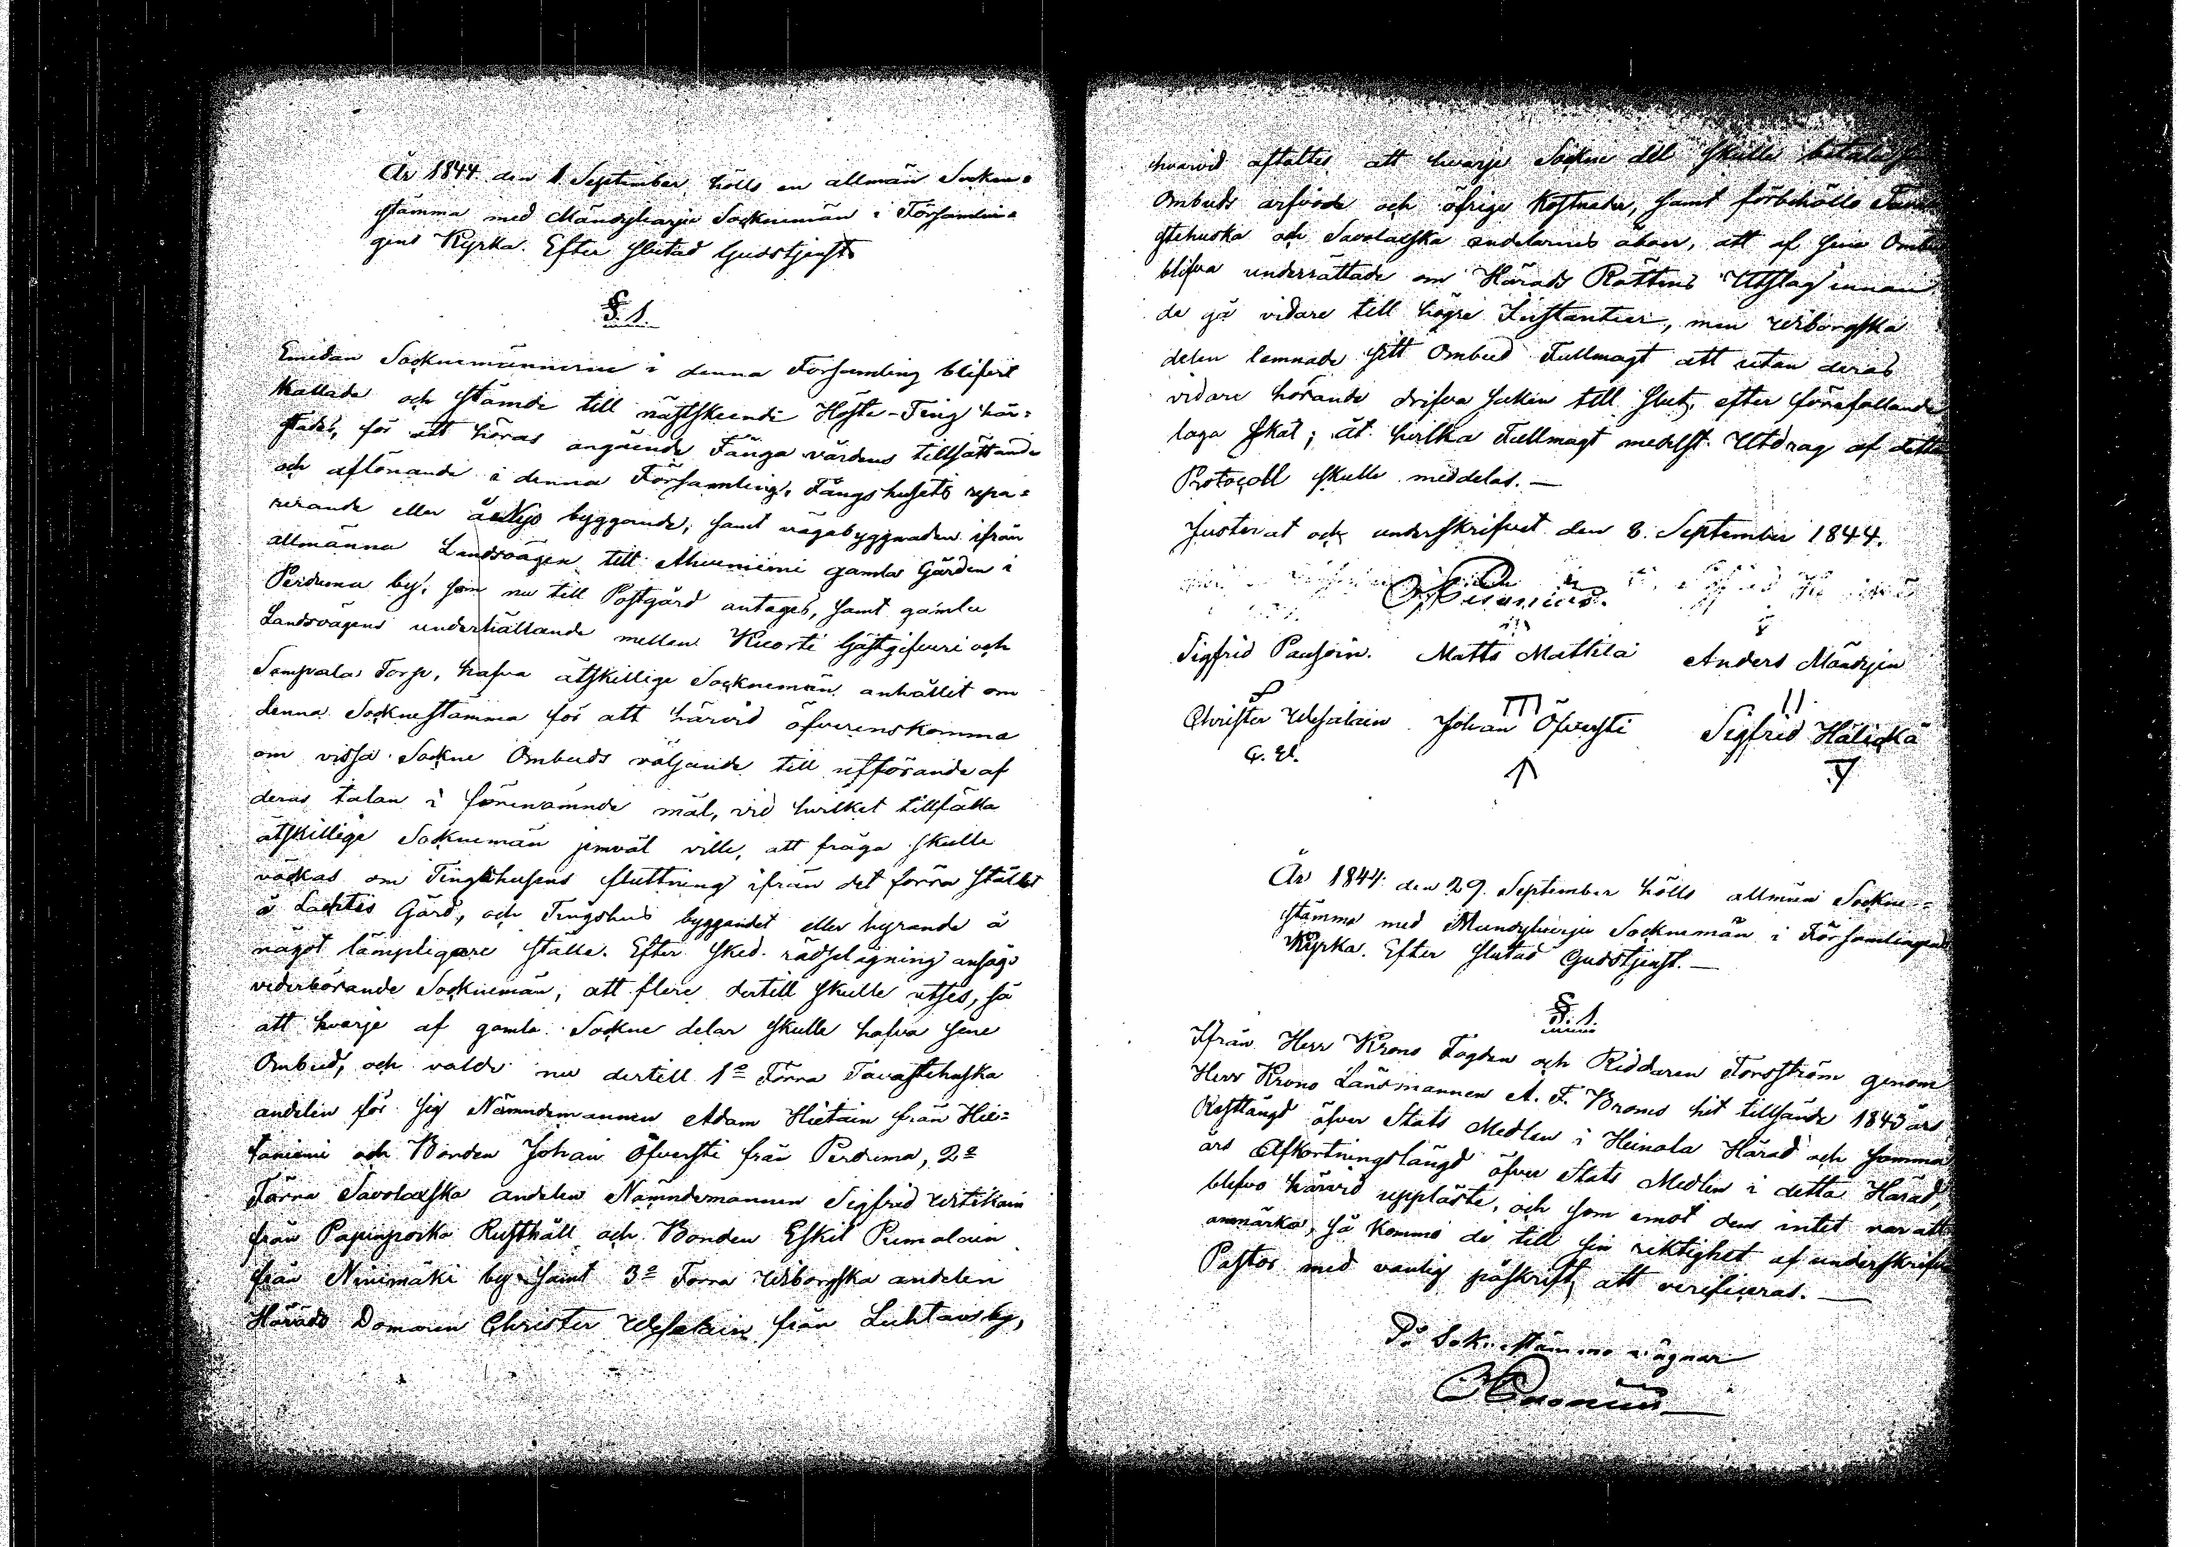 År 1844. den 1 September hölls en allmän Sockne=
stämma med Mändyharju Socknemän i Församlin=
gens Kyrka. Efter slutad Gudstjenst
§. 1.
Emedan Socknemännerne i denna Församling blifvit
kallade och stämde till nästskeende Höste-Ting här=
städes, för att höras angående Fånga vårdens tillsättande
och aflönande i denna Församling, Fångshusets repa=
rerande eller å Nyo byggande, samt vägabyggnaden ifrån
allmänna Landsvägen till Ahvenniemi gamla Gården i
Pertuma by, som nu till Postgård antages, samt gamla
Landsvägens underhållande mellan Kuorti Gästgifveri och
Sompala Torp, hafva åtskillige Socknemän anhållit om
denna Socknestämma för att härvid öfverenskomma
om vissa Sockne Ombuds väljande till utförande af
deras talan i förenämnde mål, vid hvilket tillfälle
åtskillige Socknemän jemväl ville, att fråga skulle
väckas om Tingshusens fluttning ifrån det förra stället
å Lachtis Gård, och Tingshus byggandet eller hyrande å
något lämpligare ställe. Efter sked rådplägning ansågo
vederbörande Socknemän, att flere dertill skulle utses, så
att hvarje af gamla Sockne delar skulle hafva sine
Ombud, och valdes nu dertill 1º Förra Tavastehuska
andelen för sig Nämndemannen Adam Hietain från Hie=
taniemi och Bonden Johan Öfversti från Pertuma, 2º
Förra Savolaxska andelen Nämndemannen Sigfrid Utikain
från Papinporka Rusthåll och Bonden Eskil Pumalain
från Ninimäki by samt 3º Förra Wiborgska andelen
Härads Domaren Christer Wesalain från Luhtans by,
hvarvid aftaltes att hvarje Sockne del skulle betala
Ombuds arfvode och öfrige kostnader, samt förbehöllo Tava
stehuska och Savolaxska andelarnes åboer, att af sine Ombud
blifva underrättade om Härads Rättens Utslag innan
de gå vidare till högre Instantier, men Wiborgska
delen lemnade sitt Ombud Fullmagt att utan deras
vidare hörande drifva saken till slut, efter förefallande
laga skäl; åt hvilka Fullmagt medelst Utdrag af detta
Protocoll skulle meddelas. —
Justerat och underskrifvet den 8. September 1844.
Sigfrid Pausoin. Matts Mattila Anders Mändyin
Christer Wesalain Johan Öfversti Sigfrid Hälickä
C. W.
År 1844 den 29. September hölls allmän Sockne=
stämma med Mandyharju Socknemän i Församlingens
Kyrka. Efter slutad Gudstjenst. —
§. 1.
Ifrån Herr Krono Fogden och Riddaren Forsström genom
Herr Krono Länsmannen A. F. Broms hit tillsände 1843 års
Restlängd öfver Stats Medlen i Heinola Härad och samma
års Afkortningslängd öfver Stats Medlen i detta Härad,
blefvo härvid uppläste, och som emot dem intet var att
anmärka, så kommo de till sin riktighet af underskrifven
Pastor med vanlig påskrift att verificeras. —
På Sokne stämmo vägnar